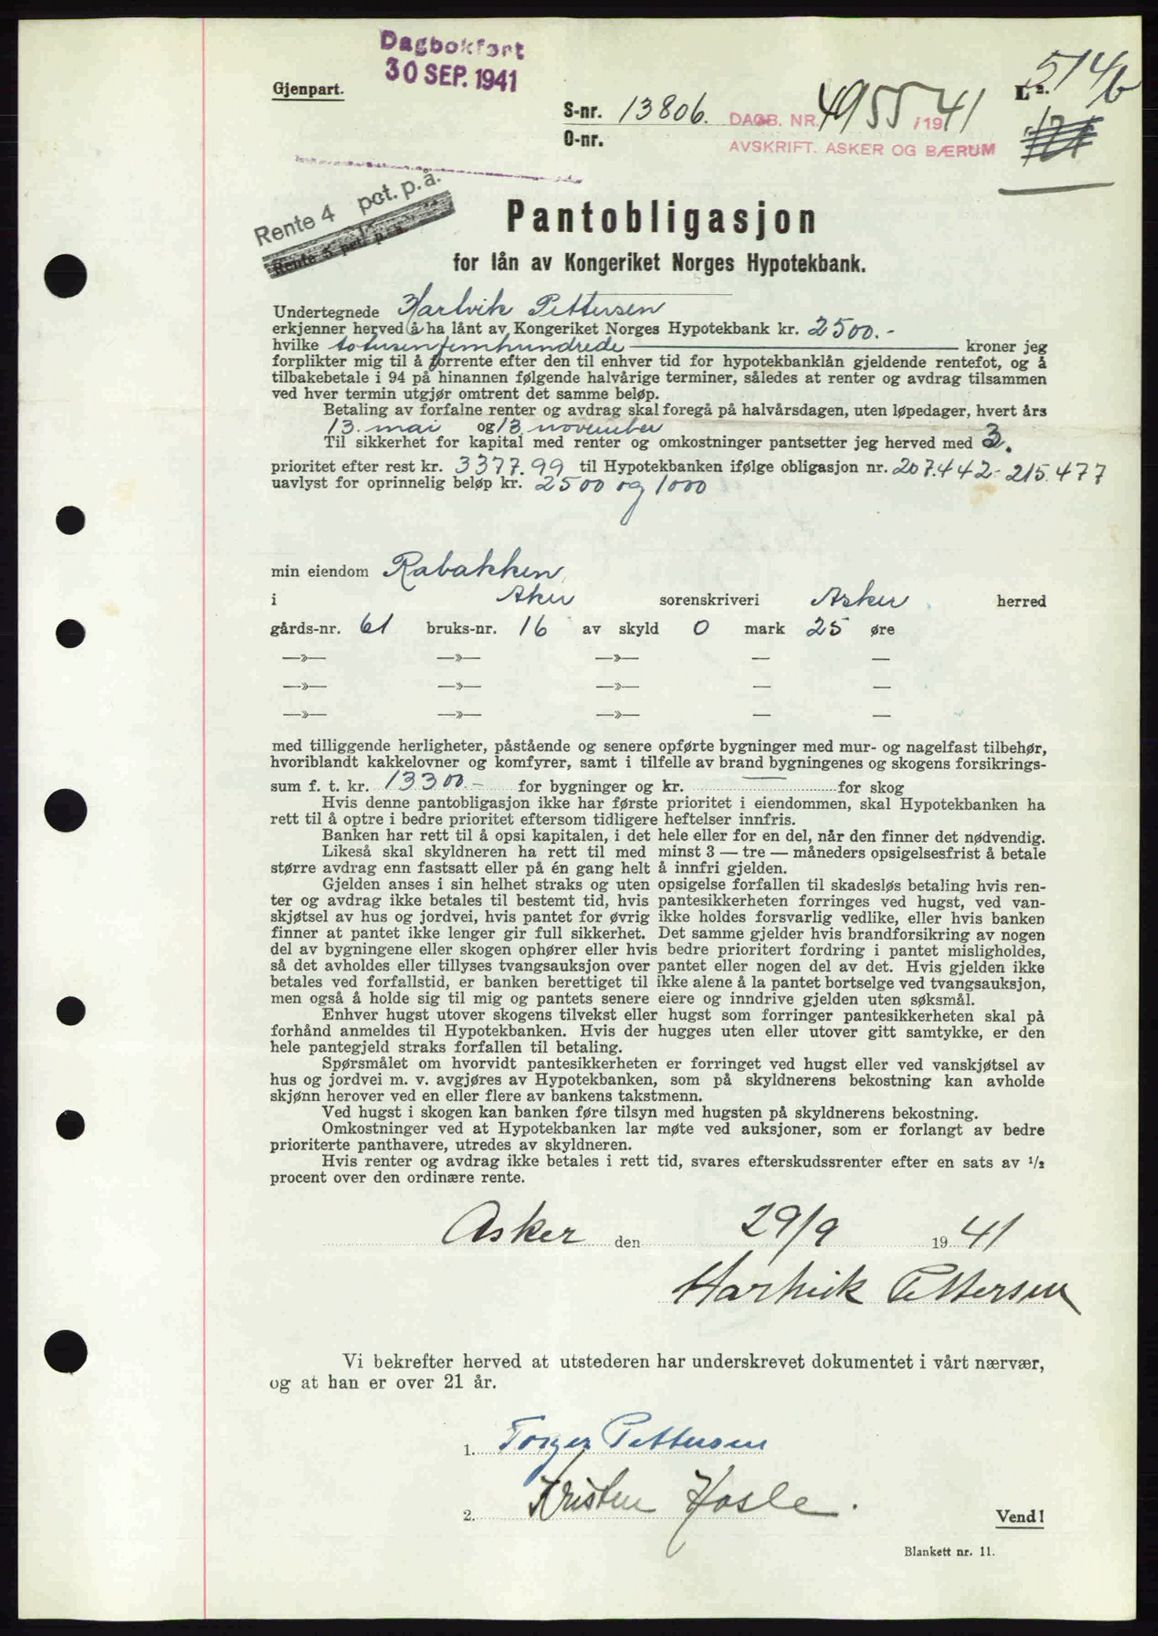 Dagbokført
30 SEP. 1941
Gjenpart.
L nr. 514b
S-nr. 13806.
DAGB. NR. 4955/1941
O-nr.
AVSKRIFT. ASKER OG BÆRUM
Rente 4 pct. p. å.
Rente 5 pct. p. a.
Pantobligasjon
for lån av Kongeriket Norges Hypotekbank.
Undertegnede Hartvik Pettersen
erkjenner herved å ha lånt av Kongeriket Norges Hypotekbank kr. 2500.-
hvilke totusenfemhundrede kroner jeg
forplikter mig til å forrente efter den til enhver tid for hypotekbanklån gjeldende rentefot, og å
tilbakebetale i 94 på hinannen følgende halvårige terminer, således at renter og avdrag tilsammen
ved hver termin utgjør omtrent det samme beløp.
Betaling av forfalne renter og avdrag skal foregå på halvårsdagen, uten løpedager, hvert års
13. mai og 13 november
Til sikkerhet for kapital med renter og omkostninger pantsetter jeg herved med 3.
prioritet efter rest kr. 3377.99 til Hypotekbanken ifølge obligasjon nr. 207.442-215.477
uavlyst for oprinnelig beløp kr. 2500 og 1000
min eiendom Rabakken,
i Aker sorenskriveri Asker herred
gårds-nr. 61 bruks-nr. 16 av skyld 0 mark 25 øre
—»— —»— —»— — —
—»— —»— —»— — —
—»— —»— —»— — —
med tilliggende herligheter, påstående og senere opførte bygninger med mur- og nagelfast tilbehør,
hvoriblandt kakkelovner og komfyrer, samt i tilfelle av brand bygningenes og skogens forsikrings-
sum f. t. kr. 13300.- for bygninger og kr. — for skog
Hvis denne pantobligasjon ikke har første prioritet i eiendommen, skal Hypotekbanken ha
rett til å optre i bedre prioritet eftersom tidligere heftelser innfris.
Banken har rett til å opsi kapitalen, i det hele eller for en del, når den finner det nødvendig.
Likeså skal skyldneren ha rett til med minst 3 — tre — måneders opsigelsesfrist å betale
større avdrag enn fastsatt eller på én gang helt å innfri gjelden.
Gjelden anses i sin helhet straks og uten opsigelse forfallen til skadesløs betaling hvis ren-
ter og avdrag ikke betales til bestemt tid, hvis pantesikkerheten forringes ved hugst, ved van-
skjøtsel av hus og jordvei, hvis pantet for øvrig ikke holdes forsvarlig vedlike, eller hvis banken
finner at pantet ikke lenger gir full sikkerhet. Det samme gjelder hvis brandforsikring av nogen
del av bygningene eller skogen ophører eller hvis bedre prioritert fordring i pantet misligholdes,
så det avholdes eller tillyses tvangsauksjon over pantet eller nogen del av det. Hvis gjelden ikke
betales ved forfallstid, er banken berettiget til ikke alene å la pantet bortselge ved tvangsauksjon,
men også å holde sig til mig og pantets senere eiere og inndrive gjelden uten søksmål.
Enhver hugst utover skogens tilvekst eller hugst som forringer pantesikkerheten skal på
forhånd anmeldes til Hypotekbanken. Hvis der hugges uten eller utover gitt samtykke, er den
hele pantegjeld straks forfallen til betaling.
Spørsmålet om hvorvidt pantesikkerheten er forringet ved hugst eller ved vanskjøtsel av
hus og jordvei m. v. avgjøres av Hypotekbanken, som på skyldnerens bekostning kan avholde
skjønn herover ved en eller flere av bankens takstmenn.
Ved hugst i skogen kan banken føre tilsyn med hugsten på skyldnerens bekostning.
Omkostninger ved at Hypotekbanken lar møte ved auksjoner, som er forlangt av bedre
prioriterte panthavere, utredes av skyldneren.
Hvis renter og avdrag ikke betales i rett tid, svares efterskudssrenter efter en sats av 1/2
procent over den ordinære rente.
Asker den 29/9 1941
Hartvik Pettersen
Vi bekrefter herved at utstederen har underskrevet dokumentet i vårt nærvær,
og at han er over 21 år.
1. Torger Pettersen
2. Kristen Hosle.
Vend!
Blankett nr. 11.